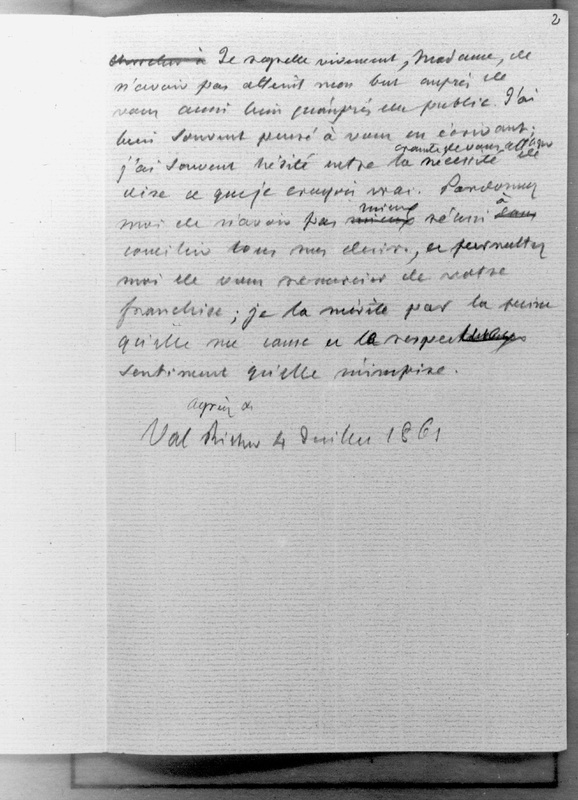 2
chercher à Je regrette vivement, Madame, de
n'avoir pas atteint mon but auprès de
vous aussi bien qu'auprès du public. J'ai
bien souvent pensé à vous en écrivant;
crainte de vous affliger
j'ai souvent hésité entre la nécessité de
dire ce que je croyois vrai. Pardonnez
mieux à
moi de n'avoir pas mieux réussi dans
concilier tous mes desirs, et permettez
moi de vous remercier de votre
franchise; je la mérite par la peine
qu'elle me cause et le respect
sentiment qu'elle m'impose.
Agréez &
Val Richer 4 Juillet 1861